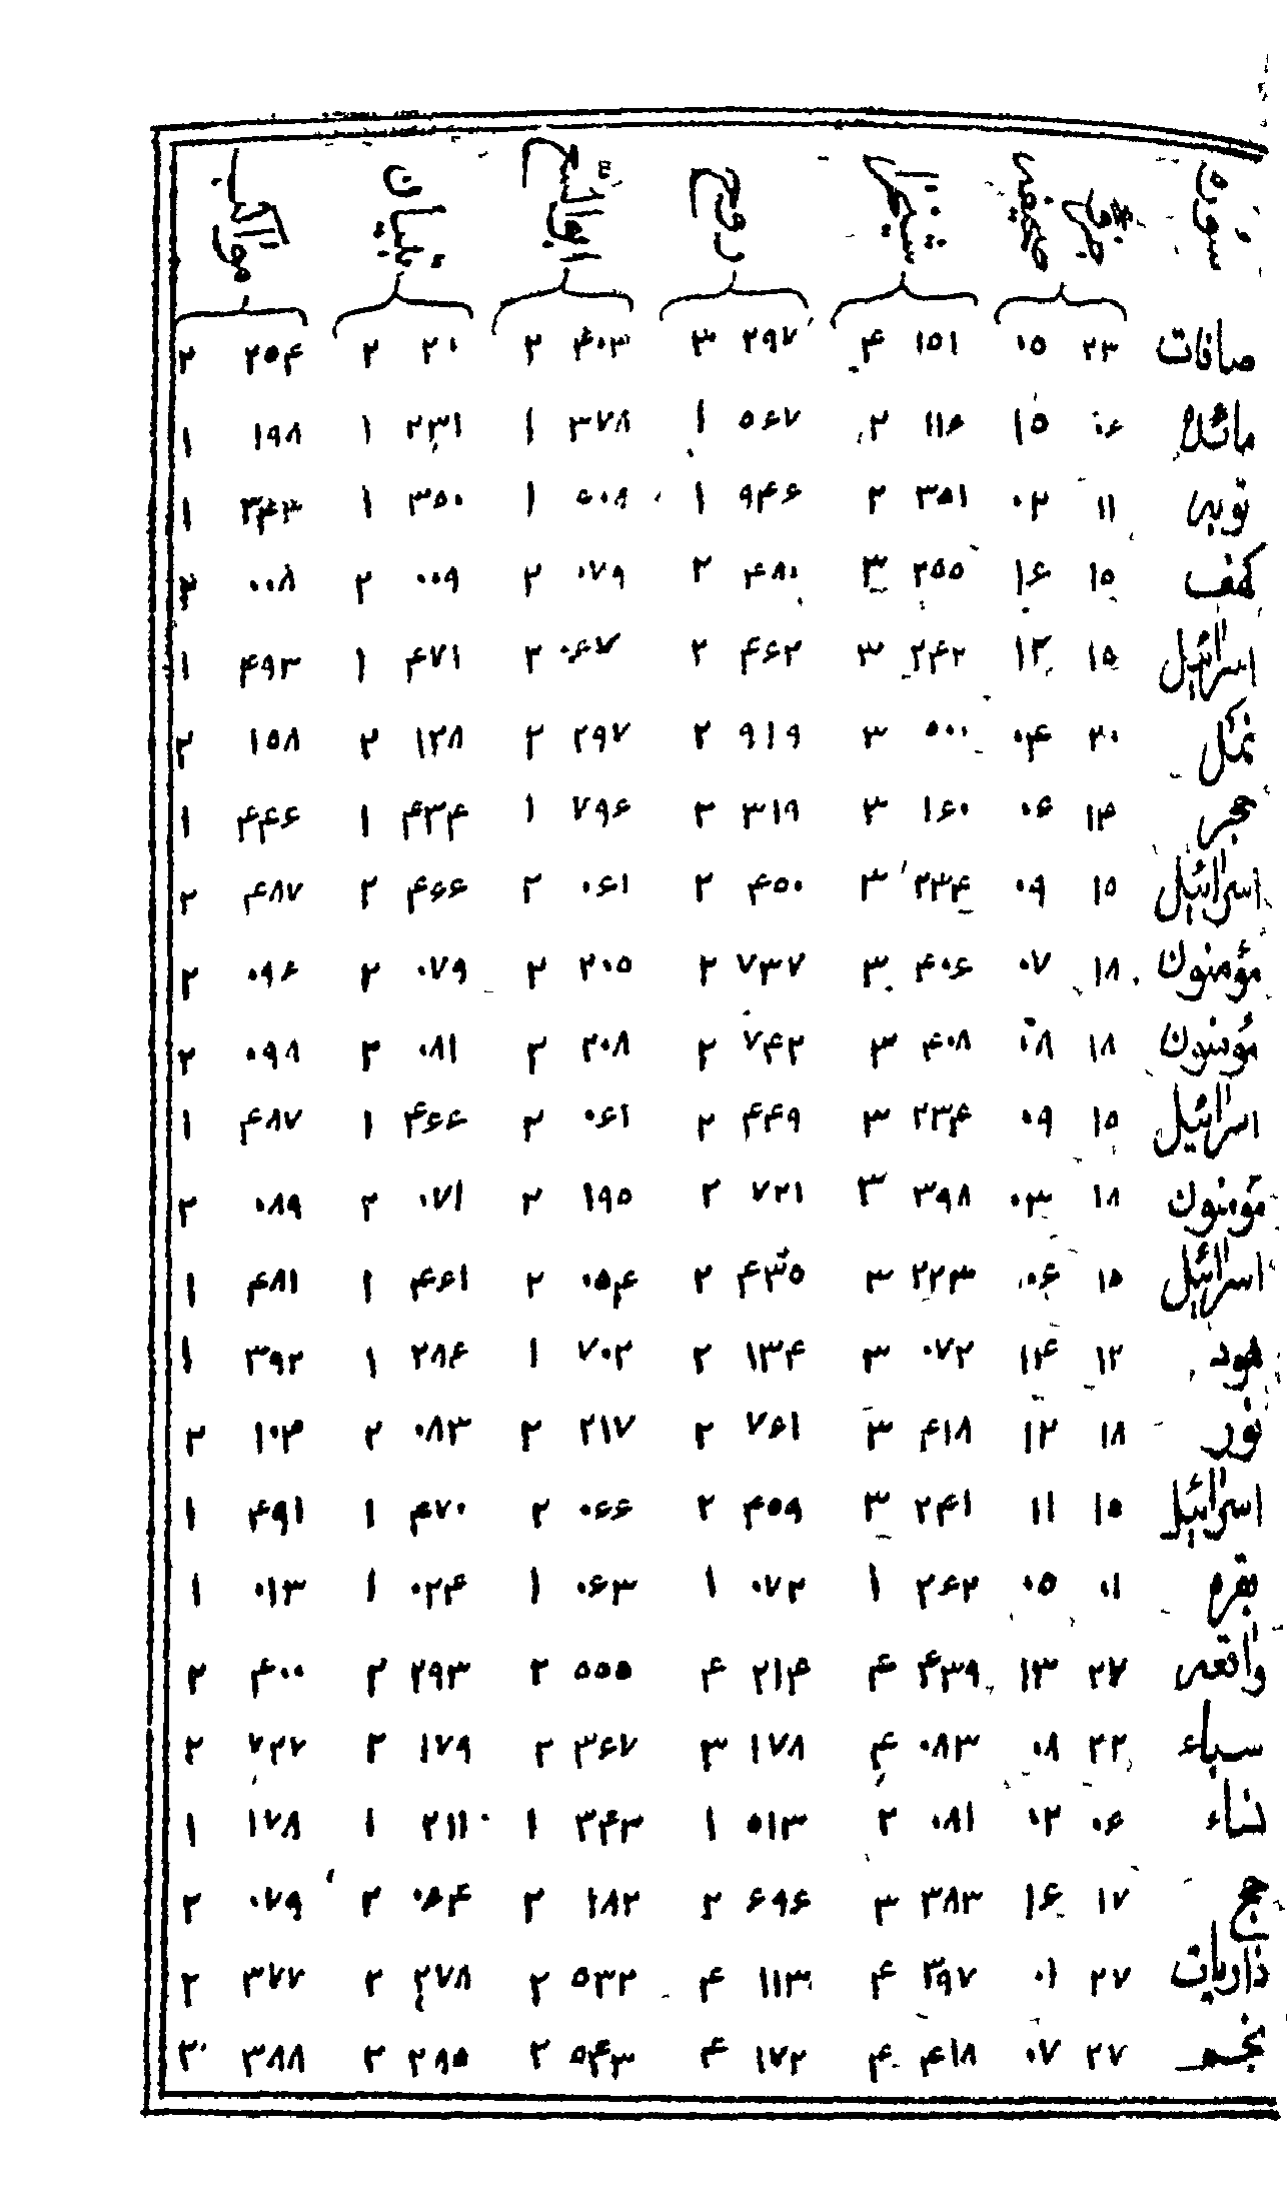 صافات ۲۳ ۰۵ ۱۵۱ ۴ ۲۹۷ ۳ ۴۰۳ ۲ ۲۰ ۲ ۲۵۴ ۲
مائده ۰۶ ۱۵ ۱۱۶ ۲ ۵۶۷ ۱ ۳۷۸ ۱ ۲۳۱ ۱ ۱۹۸ ۱
توبه ۱۱ ۰۲ ۳۵۱ ۲ ۹۴۶ ۱ ۶۰۸ ۱ ۳۵۰ ۱ ۳۴۳ ۱
کهف ۱۵ ۱۶ ۲۵۵ ۳ ۴۸۰ ۲ ۰۷۹ ۲ ۰۰۹ ۲ ۰۰۸ ۲
اسرائیل ۱۵ ۱۲ ۲۴۲ ۳ ۴۶۲ ۲ ۰۶۷ ۲ ۴۷۱ ۱ ۴۹۳ ۱
نمل ۲۰ ۰۴ ۵۰۰ ۳ ۹۱۹ ۲ ۲۹۷ ۲ ۱۲۸ ۲ ۱۵۸ ۲
حجر ۱۴ ۰۶ ۱۶۰ ۳ ۳۱۹ ۲ ۷۹۶ ۱ ۴۳۴ ۱ ۴۴۶ ۱
اسرائیل ۱۵ ۰۹ ۲۳۴ ۳ ۴۵۰ ۲ ۰۶۱ ۲ ۴۶۶ ۲ ۴۸۷ ۲
مؤمنون ۱۸ ۰۷ ۴۰۶ ۳ ۷۳۷ ۲ ۲۰۵ ۲ ۰۷۹ ۲ ۰۹۶ ۲
مؤمنون ۱۸ ۰۸ ۴۰۸ ۳ ۷۴۲ ۲ ۲۰۸ ۲ ۰۸۱ ۲ ۰۹۸ ۲
اسرائیل ۱۵ ۰۹ ۲۳۴ ۳ ۴۴۹ ۲ ۰۶۱ ۲ ۴۶۶ ۱ ۴۸۷ ۱
مؤمنون ۱۸ ۰۳ ۳۹۸ ۳ ۷۲۱ ۲ ۱۹۵ ۲ ۰۷۱ ۲ ۰۸۹ ۲
اسرائیل ۱۵ ۰۶ ۲۲۳ ۳ ۴۳۵ ۲ ۰۵۴ ۲ ۴۶۱ ۱ ۴۸۱ ۱
هود ۱۲ ۱۴ ۰۷۲ ۳ ۱۳۴ ۲ ۷۰۲ ۱ ۲۸۶ ۱ ۳۹۲ ۱
نور ۱۸ ۱۲ ۴۱۸ ۳ ۷۶۱ ۲ ۲۱۷ ۲ ۰۸۳ ۲ ۱۰۳ ۲
اسرائیل ۱۵ ۱۱ ۲۴۱ ۳ ۴۵۹ ۲ ۰۶۶ ۲ ۴۷۰ ۱ ۴۹۱ ۱
بقره ۰۱ ۰۵ ۲۶۲ ۱ ۰۷۲ ۱ ۰۶۳ ۱ ۰۲۴ ۱ ۰۱۳ ۱
واقعه ۲۷ ۱۳ ۴۳۹ ۴ ۲۱۴ ۴ ۵۵۵ ۲ ۲۹۳ ۲ ۴۰۰ ۲
سباء ۲۲ ۰۸ ۰۸۳ ۴ ۱۷۸ ۳ ۳۶۷ ۲ ۱۷۹ ۲ ۲
نساء ۰۶ ۰۲ ۰۸۱ ۲ ۵۱۳ ۱ ۳۴۳ ۱ ۲۱۱ ۱ ۱۷۸ ۱
حج ۱۷ ۱۶ ۳۸۳ ۳ ۶۹۶ ۲ ۱۸۲ ۲ ۰۶۴ ۲ ۰۷۹ ۲
ذاریات ۲۷ ۰۱ ۳۹۷ ۴ ۱۱۳ ۴ ۵۳۲ ۲ ۲۷۸ ۲ ۳۷۷ ۲
نجم ۲۷ ۰۷ ۴۱۸ ۴ ۱۷۲ ۴ ۵۴۳ ۲ ۲۸۵ ۲ ۳۸۸ ۲